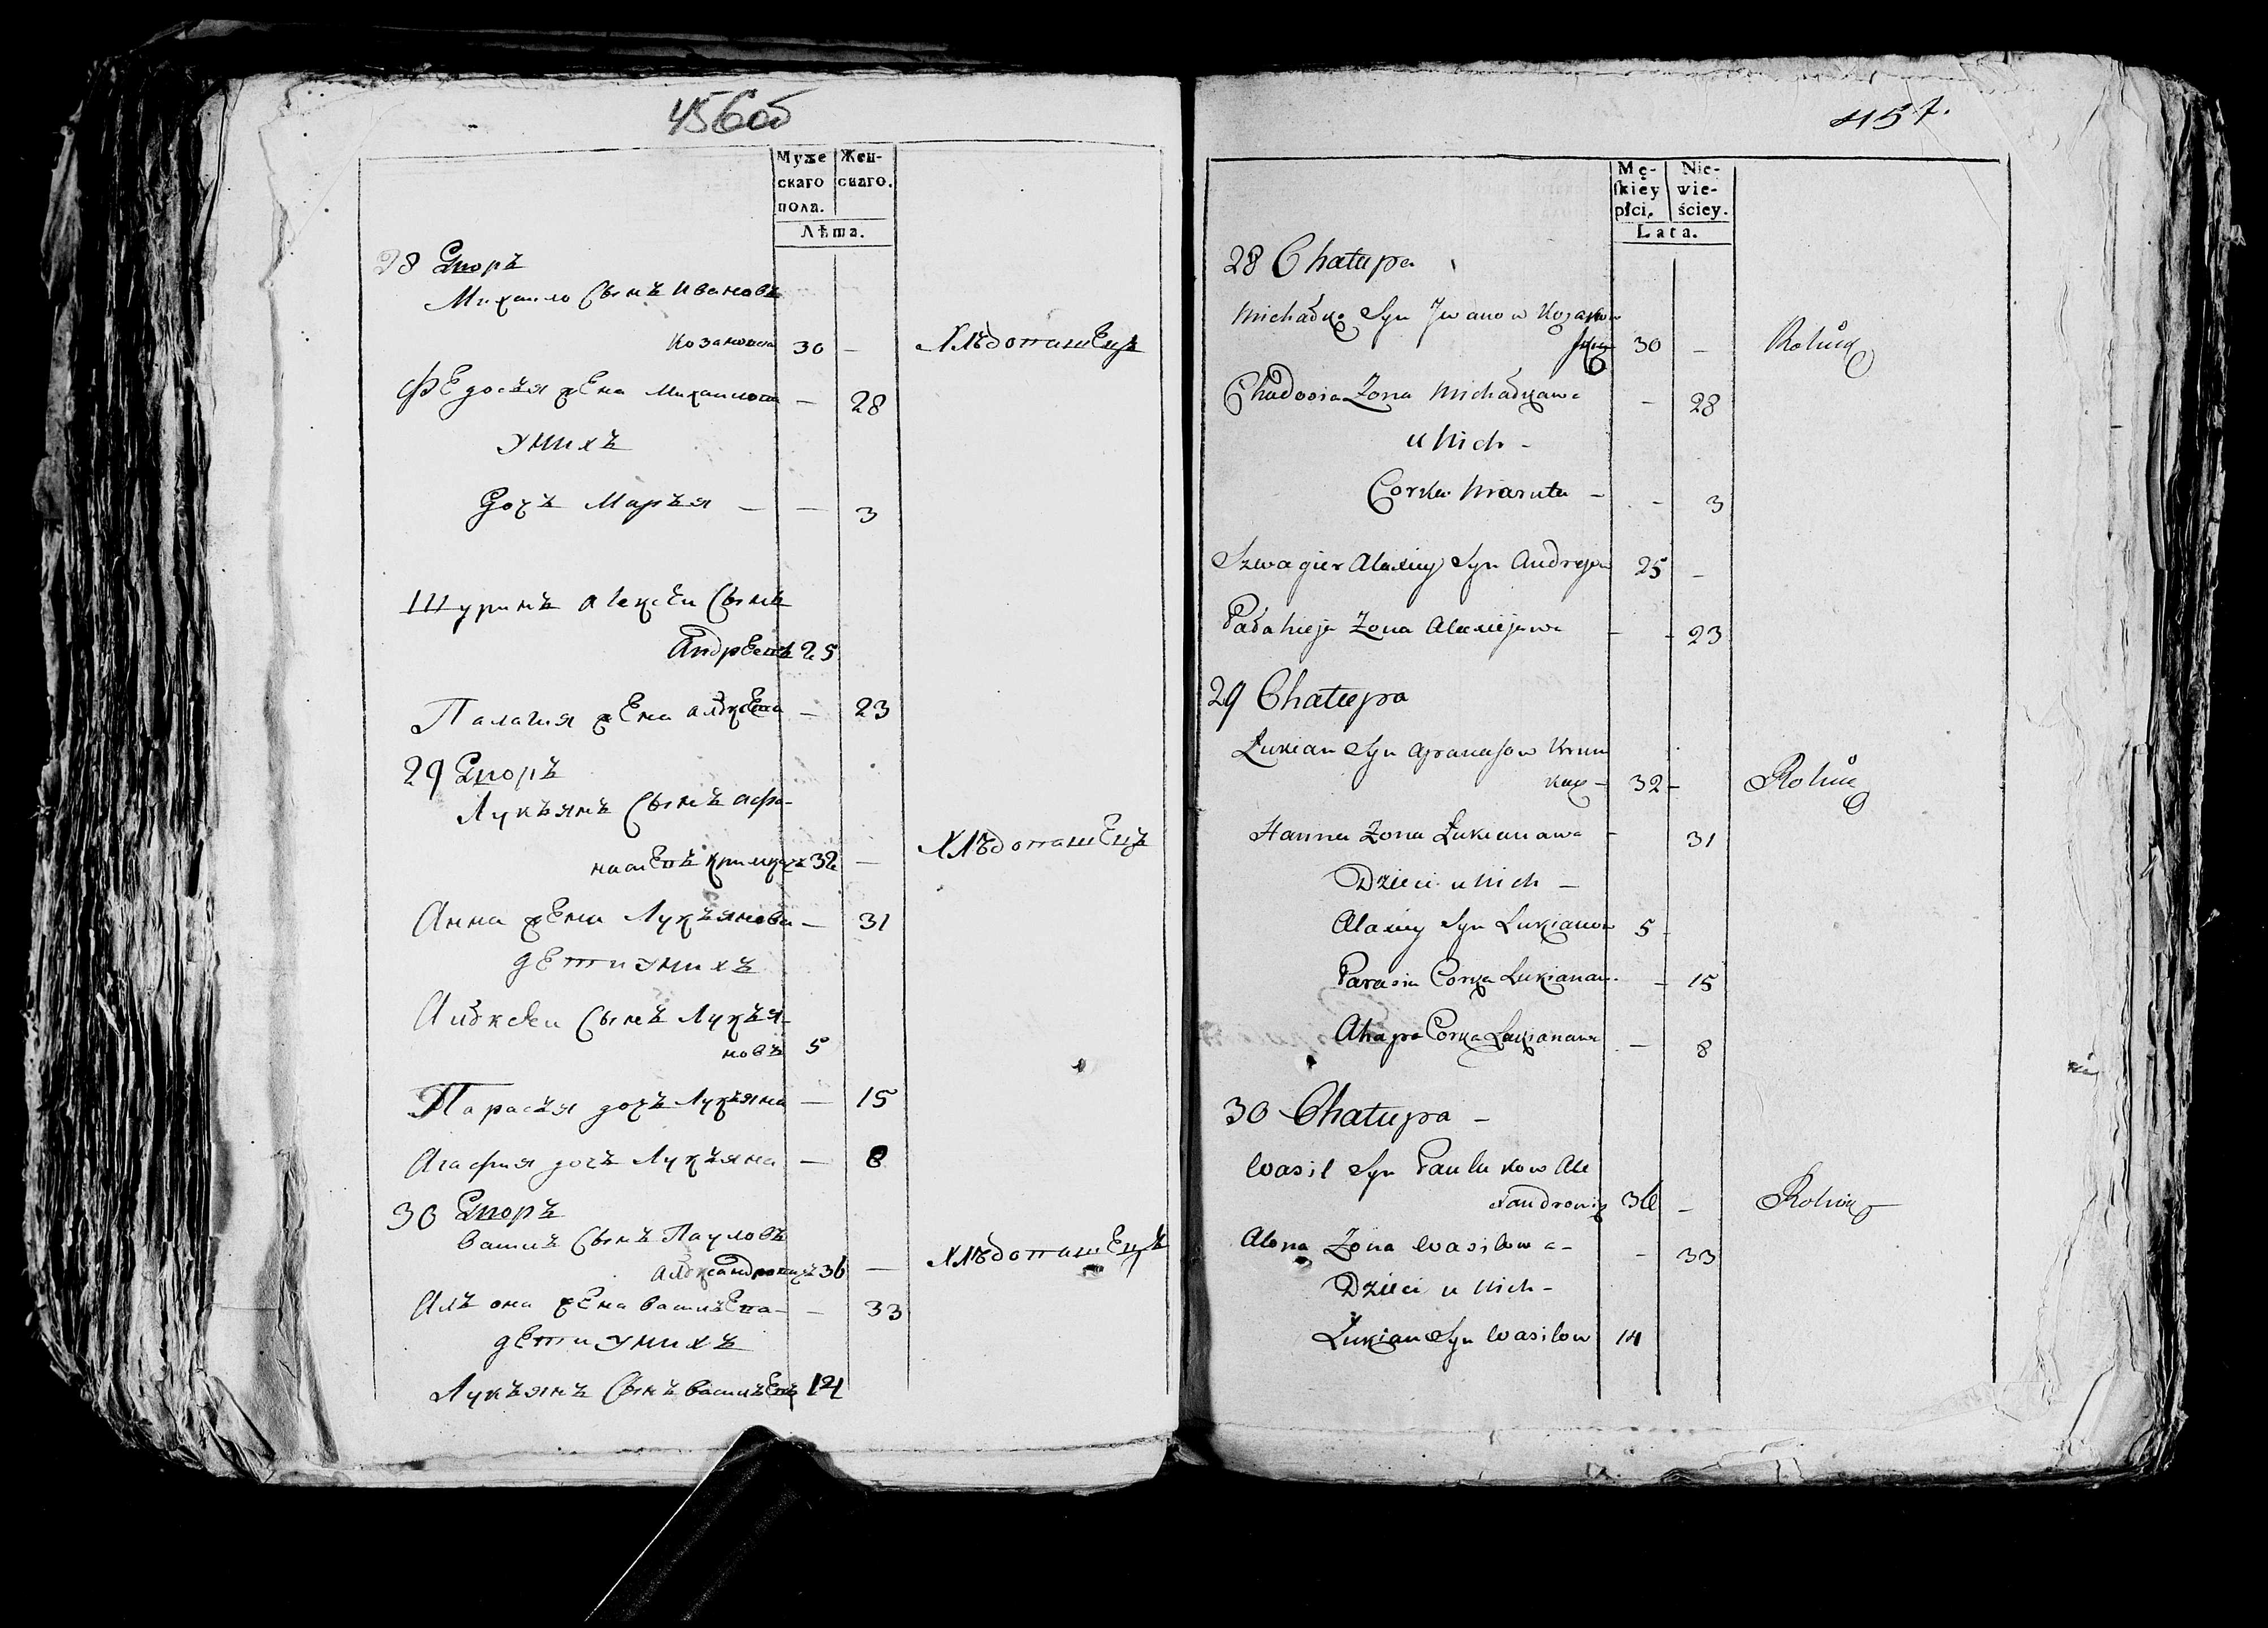 456об
Муже Жен-
скаго скаго.
пола.
Лѣта.
28 Дворъ
Михаило Сынъ Ивановъ
30 — Хлѣбопашецъ
Федосья жена Михаилова — 28
у нихъ
Дочъ Маръя — — 3
Шуринъ Алексѣи Сынъ
Андреевъ 25
Палагия жена Алексеева — 23
29 Дворъ
Лукъянъ Сынъ Афа-
насьевъ 32 — Хлѣбопашецъ
Анна жена Лукъянова — 31
дети у нихъ
Алексѣи Сынъ Лукъя-
новъ 5
Парасъя дочъ Лукъяна — 15
Агафия дочъ Лукъяна — 8
30 Дворъ
Василь Сынъ Пауловъ
Александровичъ 36 — Хлѣбопашецъ
Алъона жена Василѣва — — 33
дети у нихъ
Лукъянъ Сынъ Василѣвъ 14
457.
Mę- Nie-
skiey wie-
płci. ściey.
Lata.
28 Chałupa
Michałko Syn Jwanow
30 — Rolnik
Chadosia Zona Michałkawa — 28
u nich -
Corka Maruta — - 3
Szwagier Alaxiey Syn Andrejow 25 —
Pałahieja Zona Alaxiejawa — - 23
29 Chałupa
Łukian Syn Apanasow
32 - Rolnik
Hanna Zona Łukianawa — 31
Dzieci u nich —
Alaxiey Syn Lukianow 5 -
Parasia Corka Lukianaw. - 15
Ahapa Corka Lukianawa — 8
30 Chałupa -
Wasil Syn Paulukow Ale
xandrowicz 36 — Rolnik
Alona Zona Wasilowa - - 33
Dzieci u nich -
Łukian Syn Wasilow 14